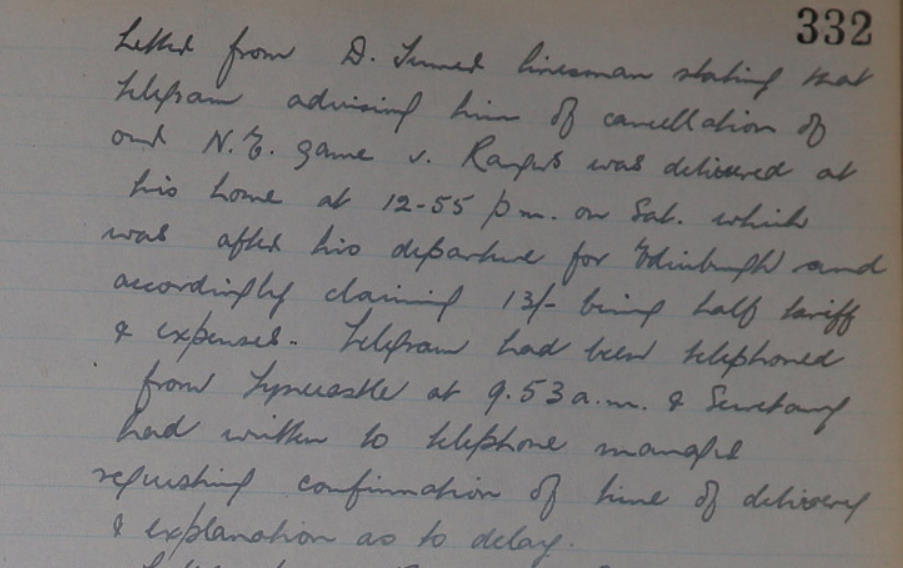 332
Letter from D. Turner linesman stating that
telegram advising him of cancellation of
our N.E. game v. Rangers was delivered at
his home at 12-55 pm. on Sat. which
was after his departure for Edinburgh and
accordingly claiming 13/- being half tariff
& expenses. Telegram had been telephoned
from Tynecastle at 9.53 a.m. & Secretary
had written to telephone manager
requesting confirmation of time of delivery
& explanation as to delay.